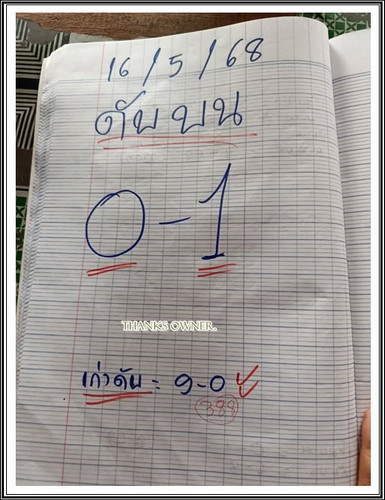 16/5/68
ดับบน
0-1
THANKS OWNER.
เก่าดับ = 9-0 ✓
388